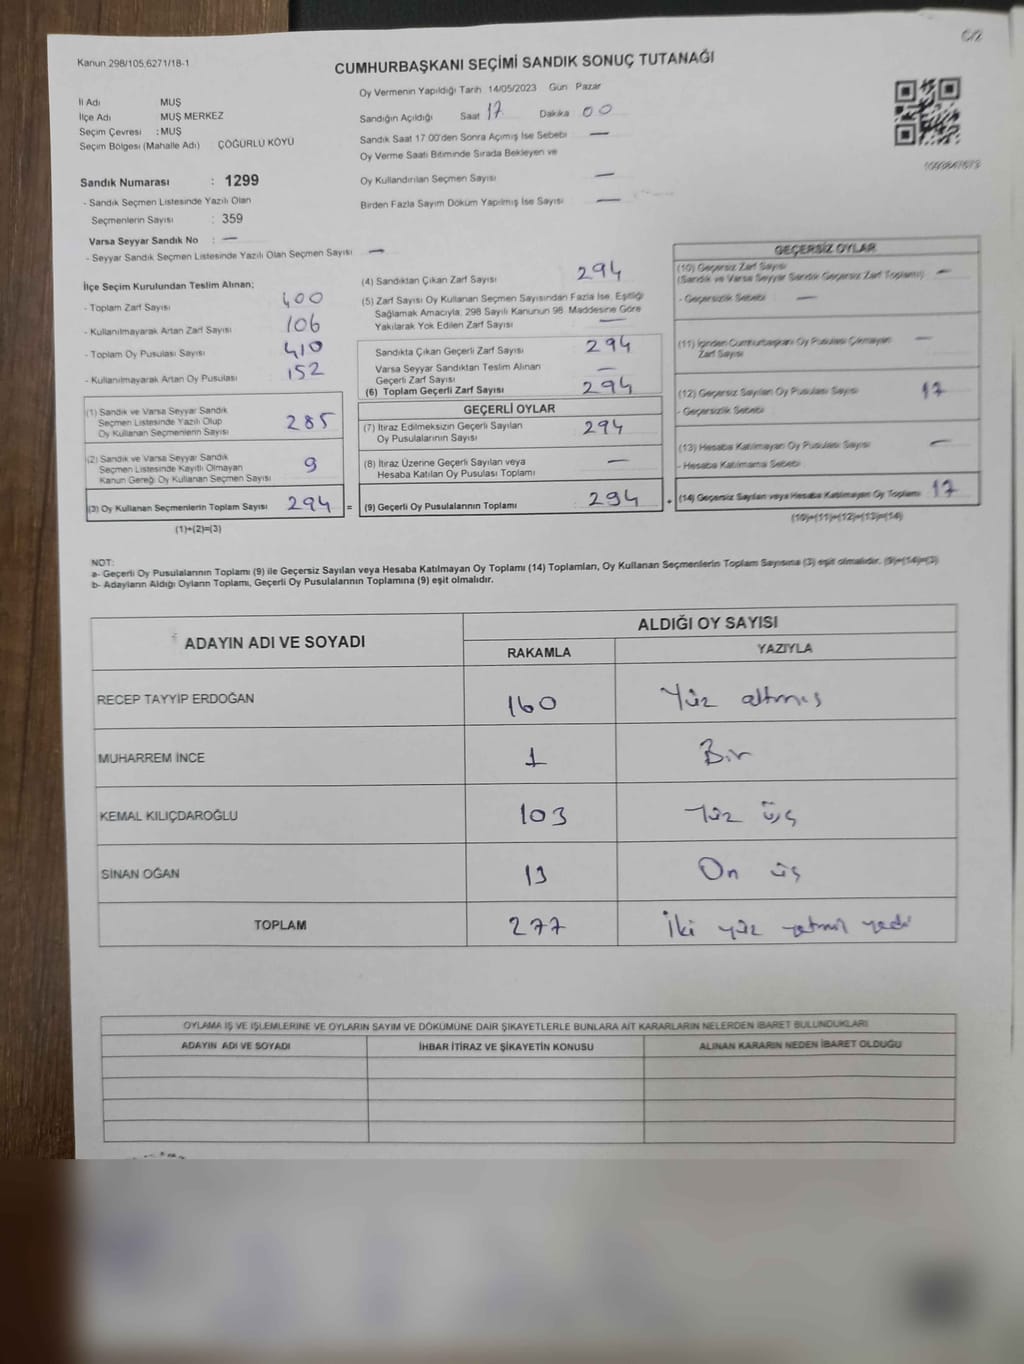 Kanun 298/105,6271/18-1
CUMHURBAŞKANI SEÇİMİ SANDIK SONUÇ TUTANAĞI
Oy Vermenin Yapıldığı Tarih 14/05/2023 Gün Pazar
İl Adı MUŞ
İlçe Adı MUŞ MERKEZ
Seçim Çevresi : MUŞ
Seçim Bölgesi (Mahalle Adı) : ÇÖĞÜRLÜ KÖYÜ
Sandığın Açıldığı Saat 17 Dakika 00
Sandık Saat 17:00'den Sonra Açılmış İse Sebebi —
Oy Verme Saati Bitiminde Sırada Bekleyen ve
Oy Kullandırılan Seçmen Sayısı —
Birden Fazla Sayım Döküm Yapılmış İse Sayısı —
Sandık Numarası : 1299
- Sandık Seçmen Listesinde Yazılı Olan
Seçmenlerin Sayısı : 359
Varsa Seyyar Sandık No : —
- Seyyar Sandık Seçmen Listesinde Yazılı Olan Seçmen Sayısı —
İlçe Seçim Kurulundan Teslim Alınan;
- Toplam Zarf Sayısı 400
- Kullanılmayarak Artan Zarf Sayısı 106
- Toplam Oy Pusulası Sayısı 410
- Kullanılmayarak Artan Oy Pusulası 152
(1) Sandık ve Varsa Seyyar Sandık
Seçmen Listesinde Yazılı Olup
Oy Kullanan Seçmenlerin Sayısı 285
(2) Sandık ve Varsa Seyyar Sandık
Seçmen Listesinde Kayıtlı Olmayan
Kanun Gereği Oy Kullanan Seçmen Sayısı 9
(3) Oy Kullanan Seçmenlerin Toplam Sayısı 294 =
(1)+(2)=(3)
(4) Sandıktan Çıkan Zarf Sayısı 294
(5) Zarf Sayısı Oy Kullanan Seçmen Sayısından Fazla İse, Eşitliği
Sağlamak Amacıyla, 298 Sayılı Kanunun 98. Maddesine Göre
Yakılarak Yok Edilen Zarf Sayısı —
Sandıkta Çıkan Geçerli Zarf Sayısı 294
Varsa Seyyar Sandıktan Teslim Alınan
Geçerli Zarf Sayısı —
(6) Toplam Geçerli Zarf Sayısı 294
GEÇERLİ OYLAR
(7) İtiraz Edilmeksizin Geçerli Sayılan
Oy Pusulalarının Sayısı 294
(8) İtiraz Üzerine Geçerli Sayılan veya
Hesaba Katılan Oy Pusulası Toplamı —
(9) Geçerli Oy Pusulalarının Toplamı 294 +
GEÇERSİZ OYLAR
(10) Geçersiz Zarf Sayısı
(Sandık ve Varsa Seyyar Sandık Geçersiz Zarf Toplamı) —
- Geçersizlik Sebebi —
(11) İçinden Cumhurbaşkanı Oy Pusulası Çıkmayan
Zarf Sayısı —
(12) Geçersiz Sayılan Oy Pusulası Sayısı 17
- Geçersizlik Sebebi
(13) Hesaba Katılmayan Oy Pusulası Sayısı —
- Hesaba Katılmama Sebebi
(14) Geçersiz Sayılan veya Hesaba Katılmayan Oy Toplamı 17
(10)+(11)+(12)+(13)=(14)
NOT:
a- Geçerli Oy Pusulalarının Toplamı (9) ile Geçersiz Sayılan veya Hesaba Katılmayan Oy Toplamı (14) Toplamları, Oy Kullanan Seçmenlerin Toplam Sayısına (3) eşit olmalıdır. (9)+(14)=(3)
b- Adayların Aldığı Oyların Toplamı, Geçerli Oy Pusulalarının Toplamına (9) eşit olmalıdır.
ADAYIN ADI VE SOYADI ALDIĞI OY SAYISI
RAKAMLA YAZIYLA
RECEP TAYYİP ERDOĞAN 160 Yüz altmış
MUHARREM İNCE 1 Bir
KEMAL KILIÇDAROĞLU 103 Yüz üç
SİNAN OĞAN 13 On üç
TOPLAM 277 İki yüz yetmiş yedi
OYLAMA İŞ VE İŞLEMLERİNE VE OYLARIN SAYIM VE DÖKÜMÜNE DAİR ŞİKAYETLERLE BUNLARA AİT KARARLARIN NELERDEN İBARET BULUNDUKLARI
ADAYIN ADI VE SOYADI İHBAR İTİRAZ VE ŞİKAYETİN KONUSU ALINAN KARARIN NEDEN İBARET OLDUĞU